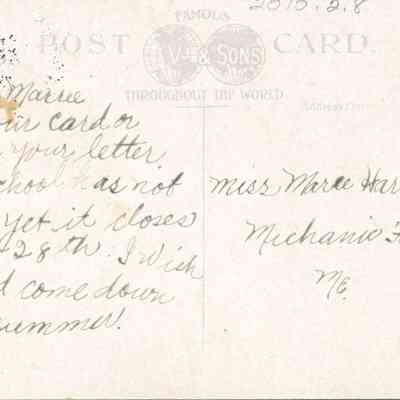 2010.2.8
FAMOUS
POST CARD.
& SONS
THROUGHOUT THE WORLD
Address
Marie
card or
your letter.
chool has not
yet it closes
28th. I wish
d come down
summer!
Miss Marie Har
Mechanic F
Me.